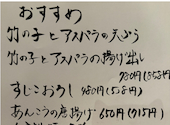 おすすめ
竹の子とアスパラの天ぷら
竹の子とアスパラの揚げ出し
780円(858円)
すじこおろし 480円(528円)
あんこうの唐揚げ 650円(715円)